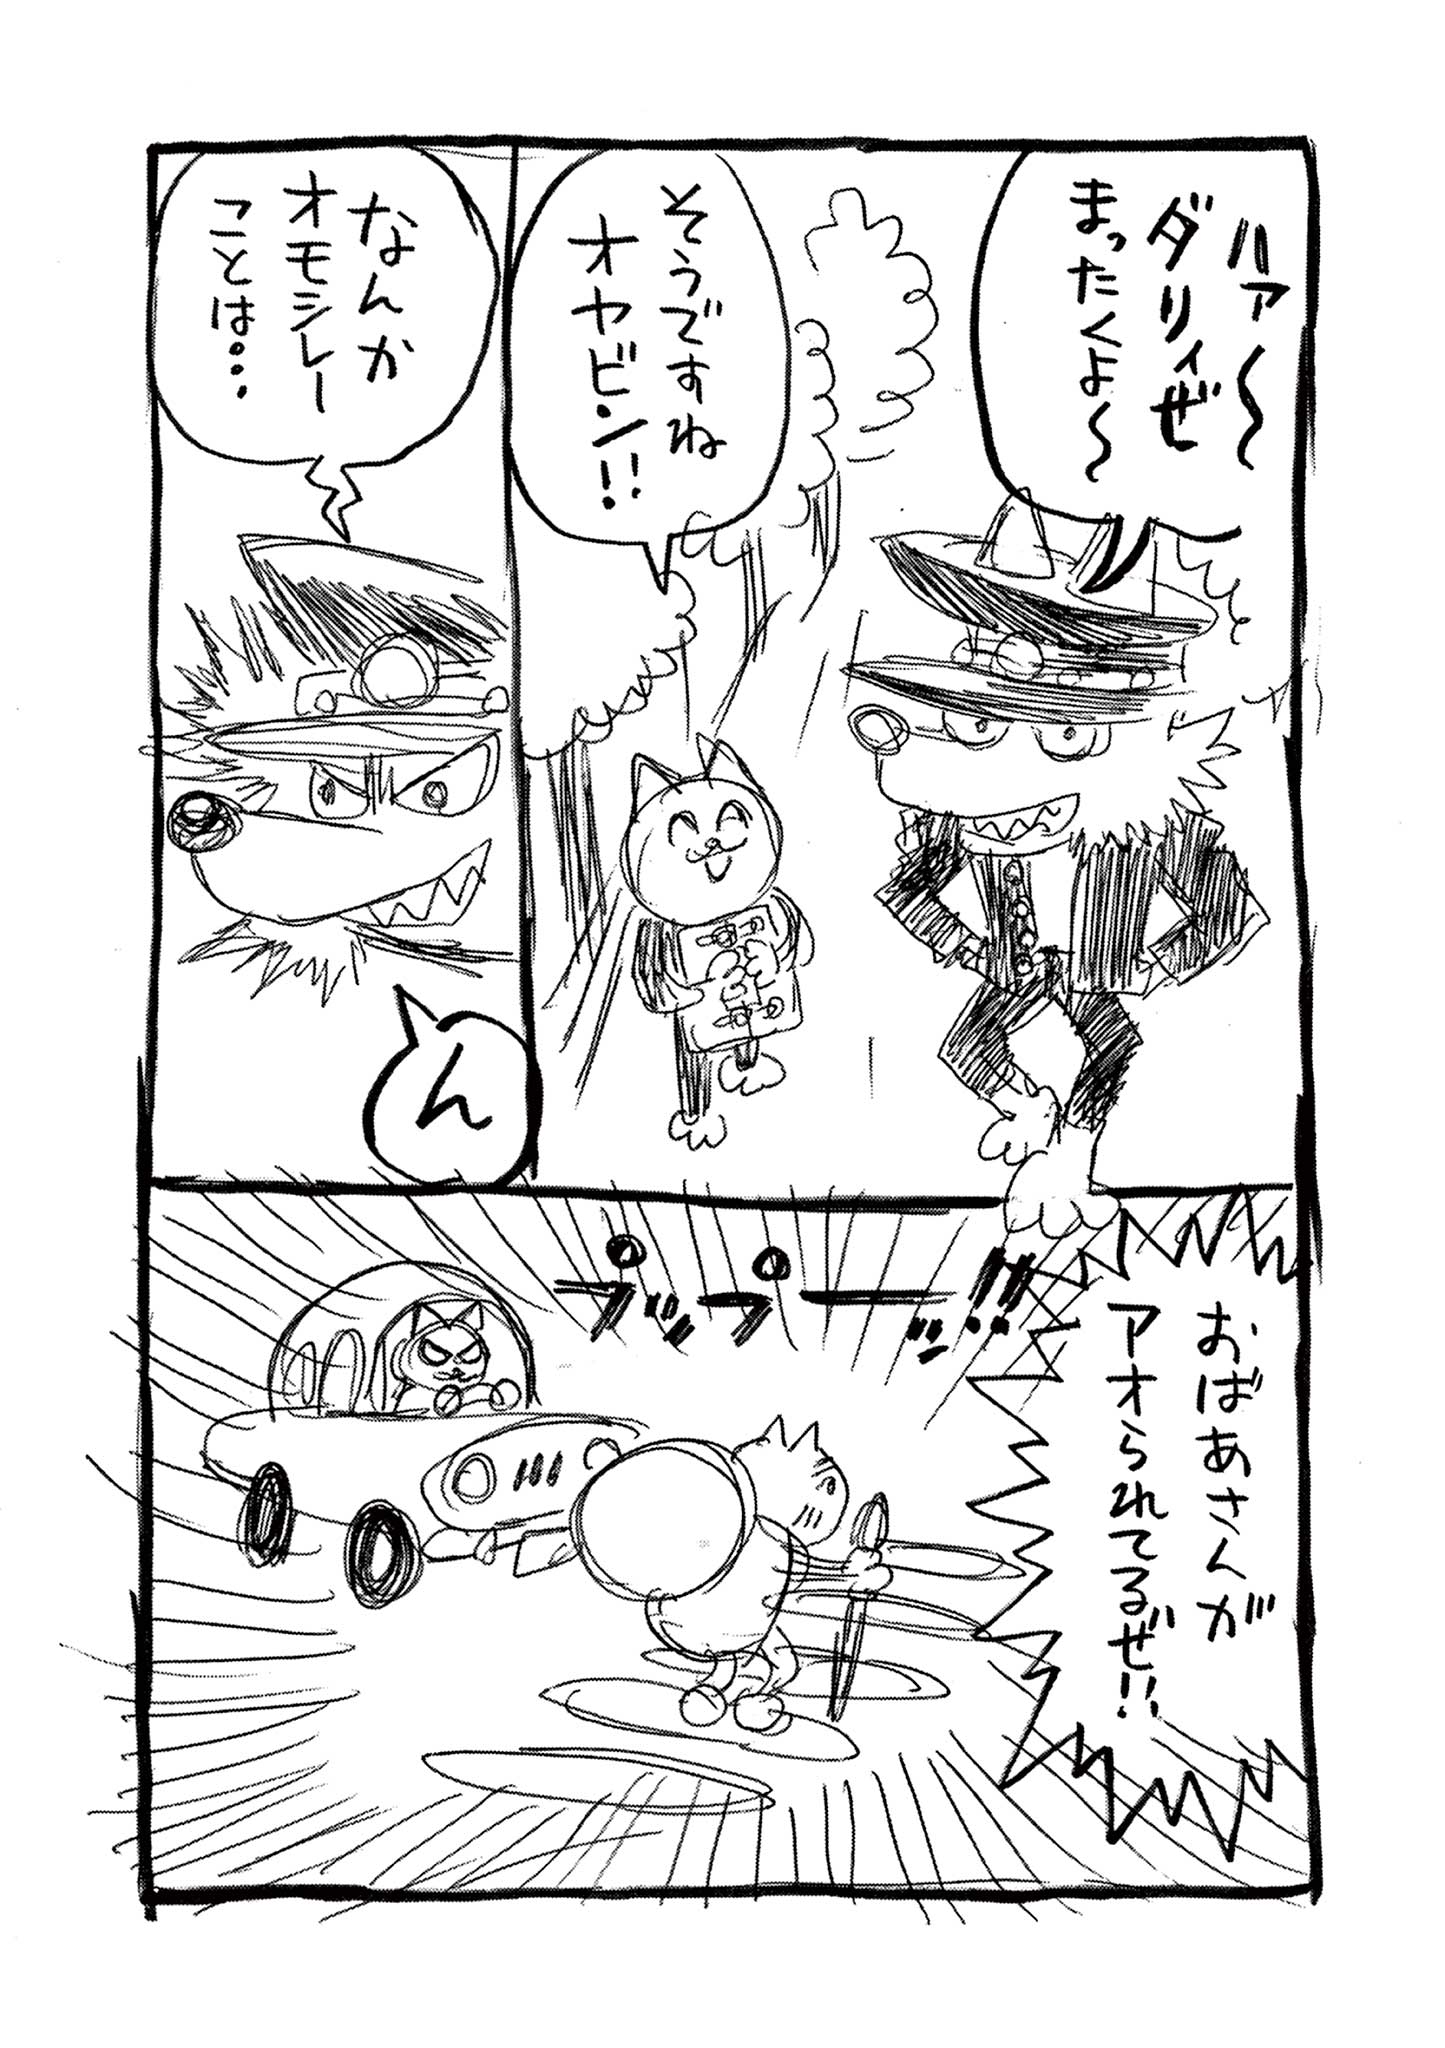 ハァ～
ダリィぜ
まったくよ～
そうですね
オヤビン!!
なんか
オモシレー
ことは…
ん
プップー!!
おばあさんが
アオられてるぜ!!